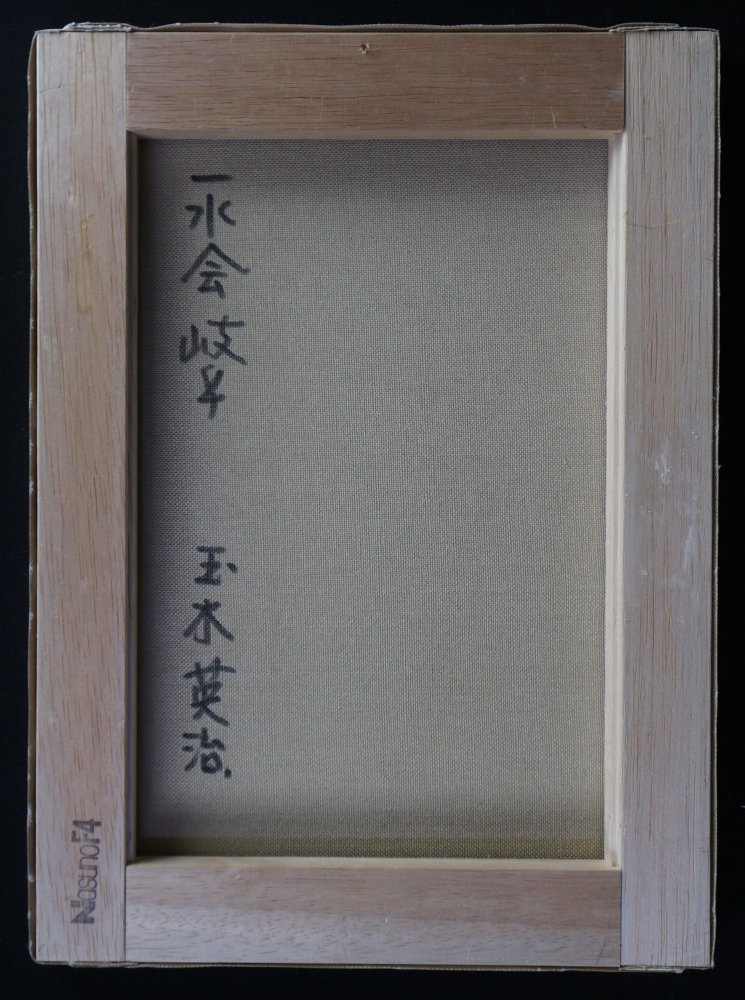 一水会 岐阜
玉木英治
Nasuno F4